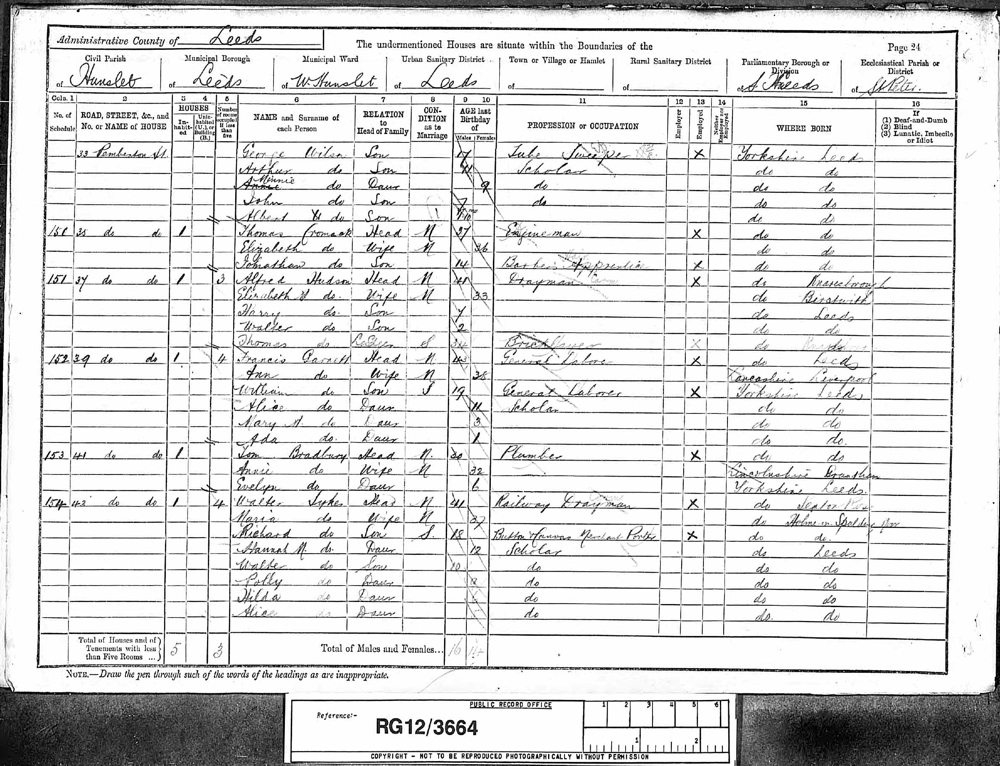 Administrative County of Leeds
The undermentioned Houses are situate within the Boundaries of the
Page 24
Civil Parish of Hunslet
Municipal Borough of Leeds
Municipal Ward of W. Hunslet
Urban Sanitary District of Leeds
Town or Village or Hamlet of
Rural Sanitary District of
Parliamentary Borough or Division of S. Leeds
Ecclesiastical Parish or District of St Peter
Cols. 1 2 3 4 5 6 7 8 9 10 11 12 13 14 15 16
No. of Schedule ROAD, STREET, &c., and No. or NAME of HOUSE HOUSES Inhabited Uninhabited (U.), or Building (B.) Number of rooms occupied if less than five NAME and Surname of each Person RELATION to Head of Family CONDITION as to Marriage AGE last Birthday of Males Females PROFESSION or OCCUPATION Employer Employed Neither Employer nor Employed WHERE BORN If (1) Deaf-and-Dumb (2) Blind (3) Lunatic, Imbecile or Idiot
33 Pemberton St George Wilson Son 17 Tube Sweeper X Yorkshire Leeds
Arthur do Son 11 Scholar do do
Minnie do Daur 9 do do do
John do Son 7 do do do
Albert H do Son do do
151 35 do do 1 Thomas Cromack Head M 37 Engineman X do do
Elizabeth do Wife M 36 do do
Johnathan do Son 14 Barbers Apprentice X do do
151 37 do do 1 3 Alfred Hudson Head M 41 Drayman X do Knaresborough
Elizabeth do Wife M 33 do Birstwith
Harry do Son 7 do Leeds
Walter do Son 2 do do
Thomas do S 34 Bricklayer X do
152 39 do do 1 4 Francis Garnett Head M 43 General Labore X do Leeds
Ann do Wife M 38 Lancashire Liverpool
William do Son S 19 General Laborer X Yorkshire Leeds
Alice do Daur 11 Scholar do do
Mary A. do Daur 3 do do
Ada do Daur 1 do do
153 41 do do 1 Tom Bradbury Head M 30 Plumber X do do
Annie do Wife M 32 Lincolnshire Grantham
Evelyn do Daur 6 Yorkshire Leeds
154 43 do do 1 4 Walter Sykes Head M 41 Railway Drayman X do
Maria do Wife M 37 do Holme on Spalding Mor
Richard do Son S 18 Button Merchant Porter X do do
Hannah M. do Daur 12 Scholar do Leeds
Walter do Son 10 do do do
Polly do Daur do do do
Hilda do Daur do do do
Alice do Daur do do do
Total of Houses and of Tenements with less than Five Rooms ... 5 3 Total of Males and Females... 16 14
NOTE.—Draw the pen through such of the words of the headings as are inappropriate.
PUBLIC RECORD OFFICE
1 2 3 4 5 6
Reference:-
RG12/3664
1 2
COPYRIGHT - NOT TO BE REPRODUCED PHOTOGRAPHICALLY WITHOUT PERMISSION